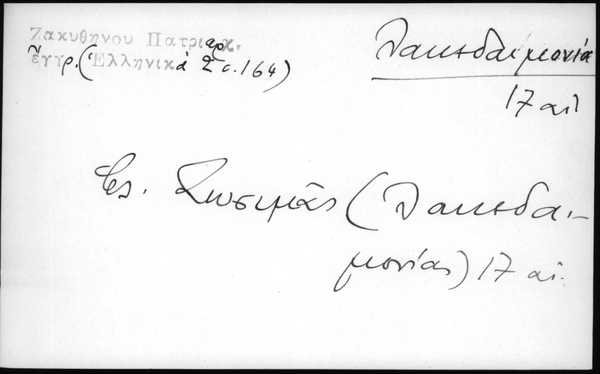 Ζακυθηνου Πατριαρχ.
ἔγγρ. (Ἑλληνικά 2 σ. 164)
Λακεδαιμονία
17 αἰ
Ζωσιμᾶς (Λακεδαι-
μονίας) 17 αἰ.